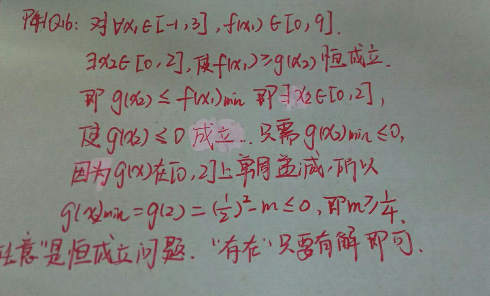 P41Q16: 对∀x₁∈[-1,3], f(x₁)∈[0,9].
∃x₂∈[0,2], 使f(x₁)≥g(x₂)恒成立.
即 g(x₂)≤f(x₁)min 即∃x₂∈[0,2],
使g(x₂)≤0 成立.. 只需g(x₂)min≤0,
因为g(x)在[0,2]上单调递减,所以
g(x)min=g(2)=(1/2)²-m≤0, 即m≥1/4.
任意"是恒成立问题. "存在"只要有解即可.